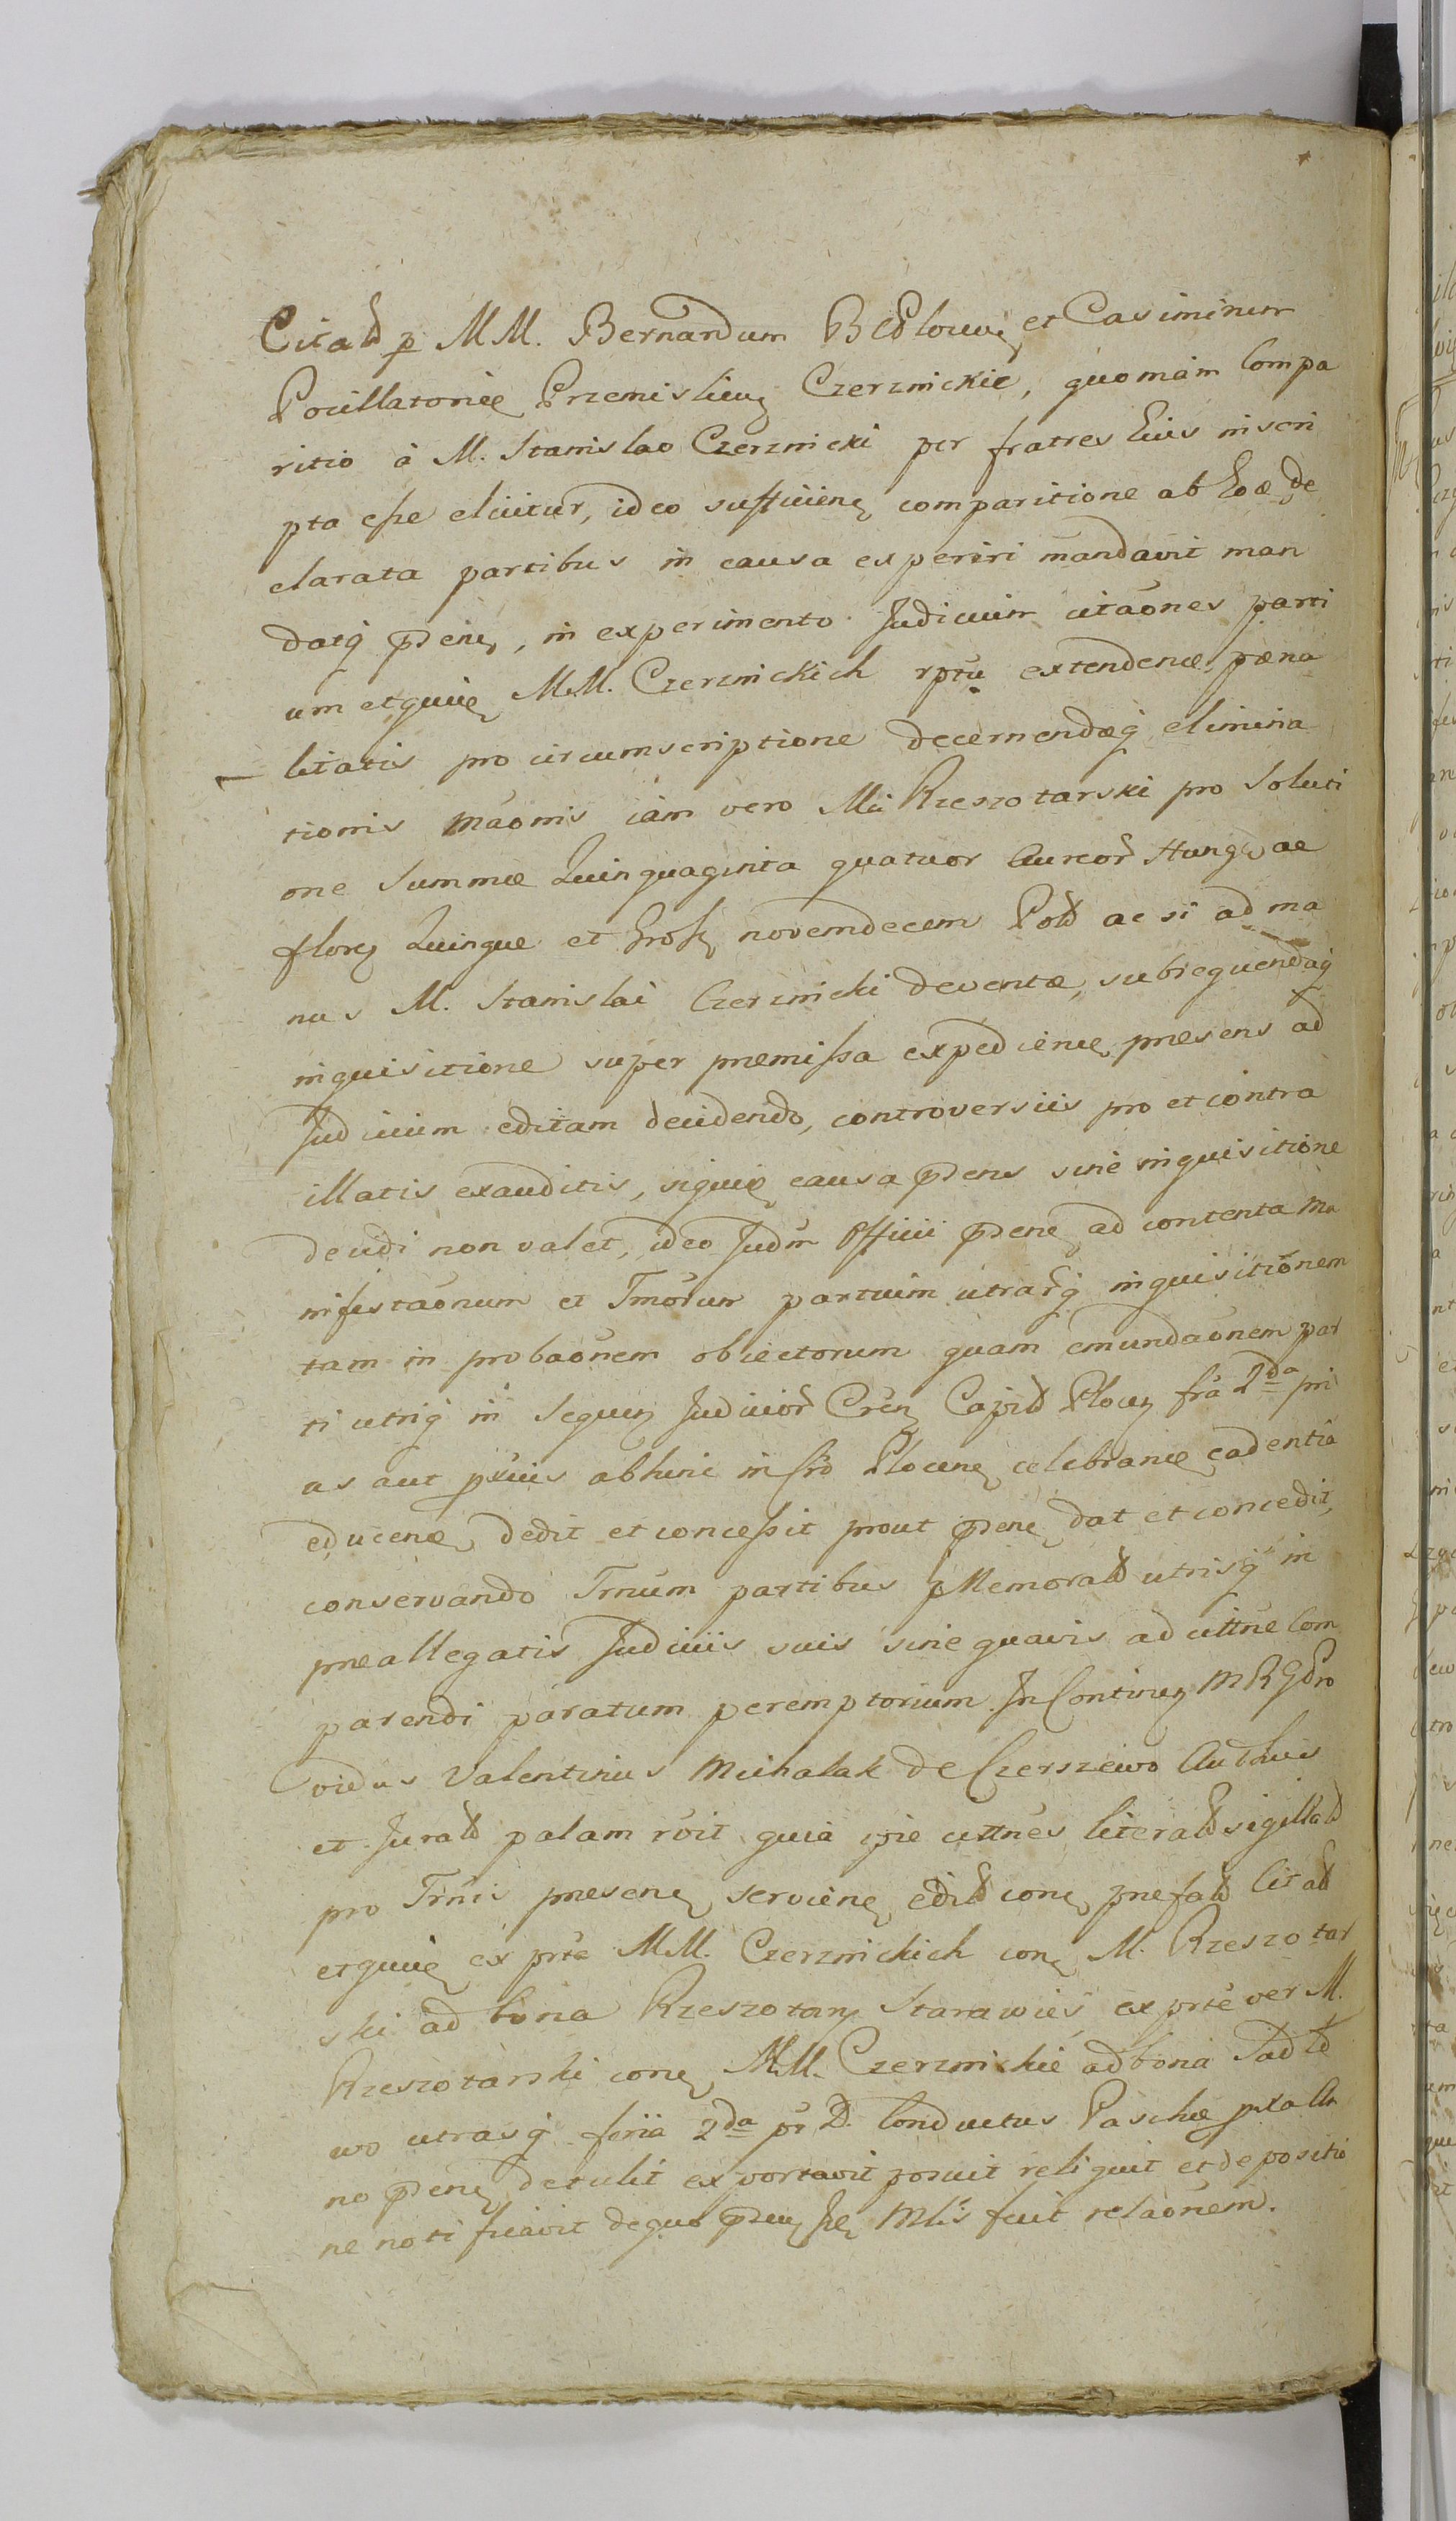 Citat p MM. Bernardum BCPlocen et Casimirum
Pocillatorie Przemislien Czerznickie, quoniam Compa
ritio à M. Stanislao Czerznicki per fratres Eius inscri
pta esse elicitur, ideo sufficien comparitione ab Eo de
clarata partibus in causa experiri mandavit man
datq pden, in experimento Judicium citaones parti
um etquie MM. Czerznickich rptu extenden, pæna
litatis pro circumscriptione decernendæq elimina
tionis maonis iam vero Mci Rzeszotarski pro Soluti
one Summæ Quinquaginta quatuor Aureor Hung ac
flor Quinque et Gross novemdecem Pol ac si ad ma
nus M. Stanislai Czerznicki deventæ, subsequendaq
inquisitione super præmissa expedien, præsens ad
Judicium editam decidendo, controversiis pro et contra
illatis exauditis, siquie causa pdens sine inquisitione
decidi non valet, ideo Judm Officii pden ad contenta ma
nifestaonum et Tmorum partium utrarq inquisitionem
tam in probaonem obiectorum quam emundaonem par
ti utriq in Sequen Judicior Cren Capit Plocen fra 2da pri
as aut pxuis abhinc in fro Plocen celebran cadentia
educen, dedit et concessit prout pden dat et concedit,
conservando Trnum partibus pMemorat utrisq in
præallegatis Judiciis suis sine quavis ad ulttne Com
parendi paratum peremptorium. In Continen MRG Pro
vidus Valentinus Michalak de Czerszewo Authus
et Jurat palam rvit quia ipse cittnes literat sigillat
pro Trnis præsen servien edit con præfat Citat
etquie ex prte MM. Czerznickich con M. Rzeszotar
ski ad bona Rzeszotary Starawieś ex prte ver M.
Rzeszotarski con MM. Czerznickie ad bona Sadło
wo utrasq feria 2da pt D. Conductus Paschæ pxa An
no pden detulit exportavit posuit reliquit et depositio
ne notificavit de quo pden Mlis fecit relaonem.